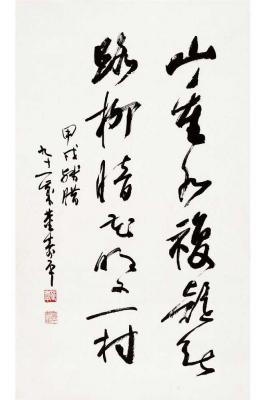 山重水複疑無
路柳暗花明又一村
甲戌残腊
九十一叟董寿平